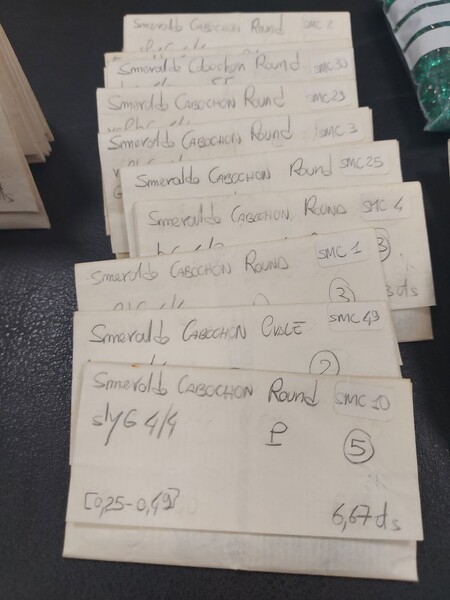 Smeraldo CABOCHON Round SMC 2
Smeraldo Cabochon Round SMC 30
Smeraldo CABOCHON Round SMC 29
Smeraldo CABOCHON Round SMC 3
Smeraldo CABOCHON Round SMC 25
Smeraldo CABOCHON ROUND SMC 4
3
Smeraldo CABOCHON ROUND SMC 1
3
3 ds
Smeraldo CABOCHON OVALE SMC 49
2
Smeraldo CABOCHON Round SMC 10
slyG 4/4 P 5
[0,25-0,49] 6,67 ds